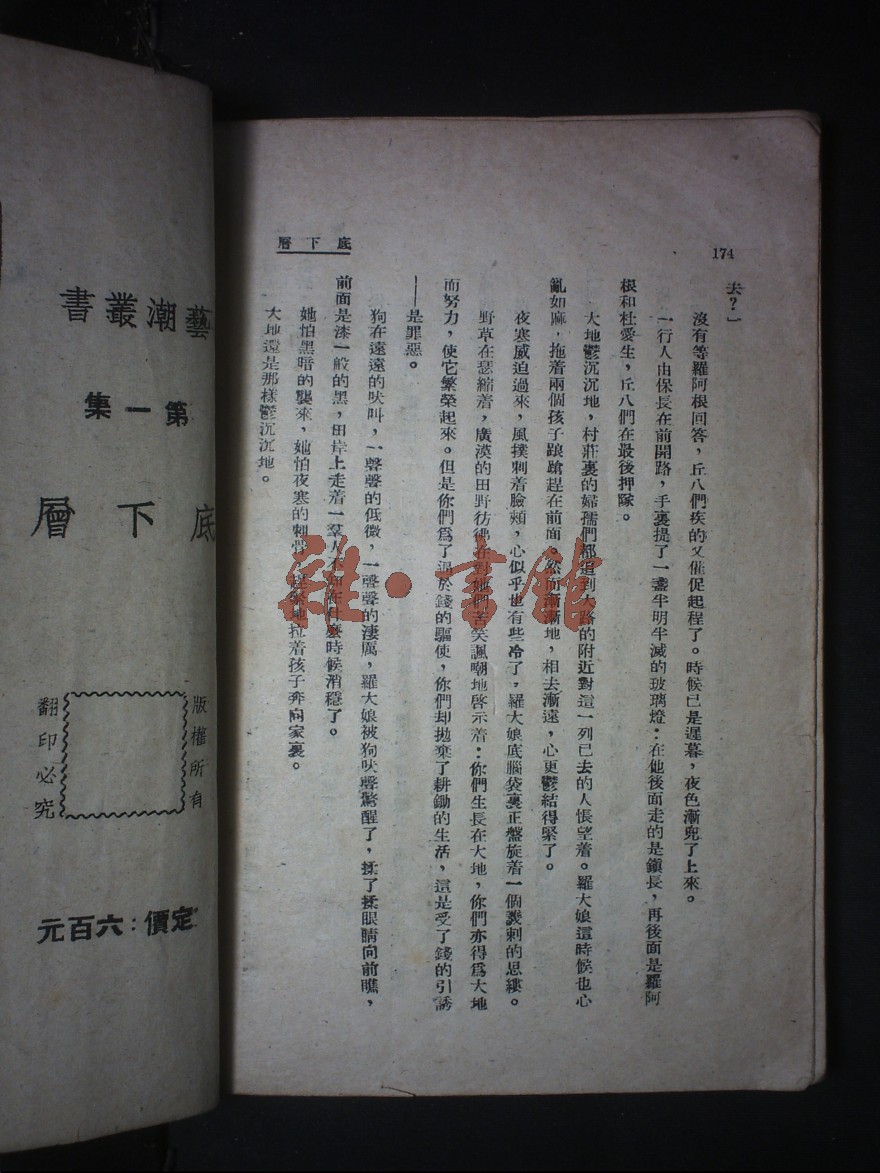 174
底下層
去？」
沒有等羅阿根回答，丘八們疾的又催促起程了。時候已是遲暮，夜色漸兜了上來。
一行人由保長在前開路，手裏提了一盞半明半滅的玻璃燈：在他後面走的是鎭長，再後面是羅阿
根和杜愛生，丘八們在最後押隊。
大地鬱沉沉地，村莊裏的婦孺們都追到大路的附近對這一列已去的人悵望着。羅大娘這時候也心
亂如麻，拖着兩個孩子踉蹌趕在前面。然而漸漸地，相去漸遠，心更鬱結得緊了。
夜寒威迫過來，風撲刺着臉頰，心似乎也有些冷了，羅大娘底腦袋裏正盤旋着一個譏刺的思縷。
野草在瑟縮着，廣漠的田野彷彿在對她們苦笑諷嘲地啓示着：你們生長在大地，你們亦得爲大地
而努力，使它繁榮起來。但是你們爲了過於錢的驅使，你們却拋棄了耕鋤的生活，這是受了錢的引誘
——是罪惡。
狗在遠遠的吠叫，一聲聲的低微，一聲聲的淒厲，羅大娘被狗吠聲驚醒了，揉了揉眼睛向前瞧，
前面是漆一般的黑，田岸上走着一羣人不知在什麼時候消穩了。
她怕黑暗的襲來，她怕夜寒的刺骨，趕緊地拉着孩子奔向家裏。
大地還是那樣鬱沉沉地。
藝潮叢書
第一集
底下層
版權所有
翻印必究
定價：六百元
雜·書館